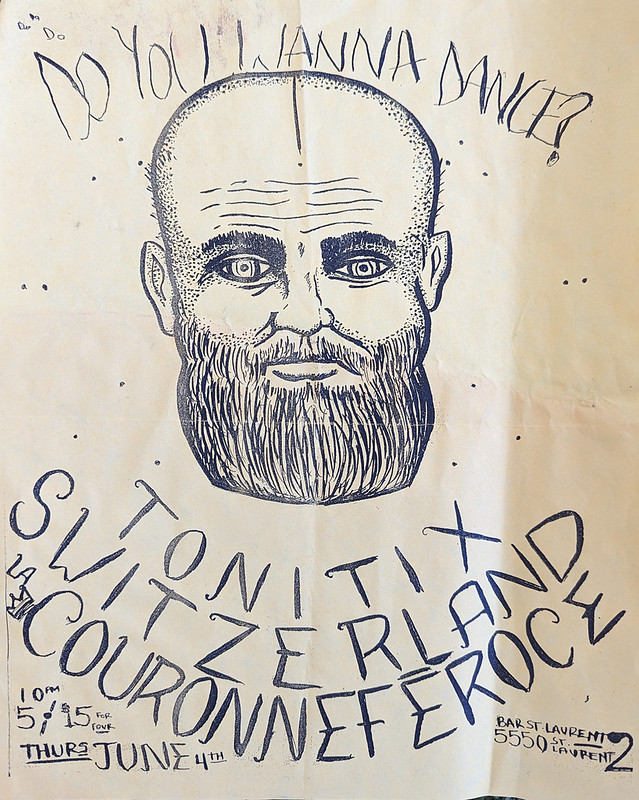 Do Do Do
DO YOU WANNA DANCE?
TONITIX
SWITZERLAND
LA COURONNE FÉROCE
10PM
5/$15 FOR FOUR
THURS JUNE 4TH
BAR ST. LAURENT 2
5550 ST. LAURENT